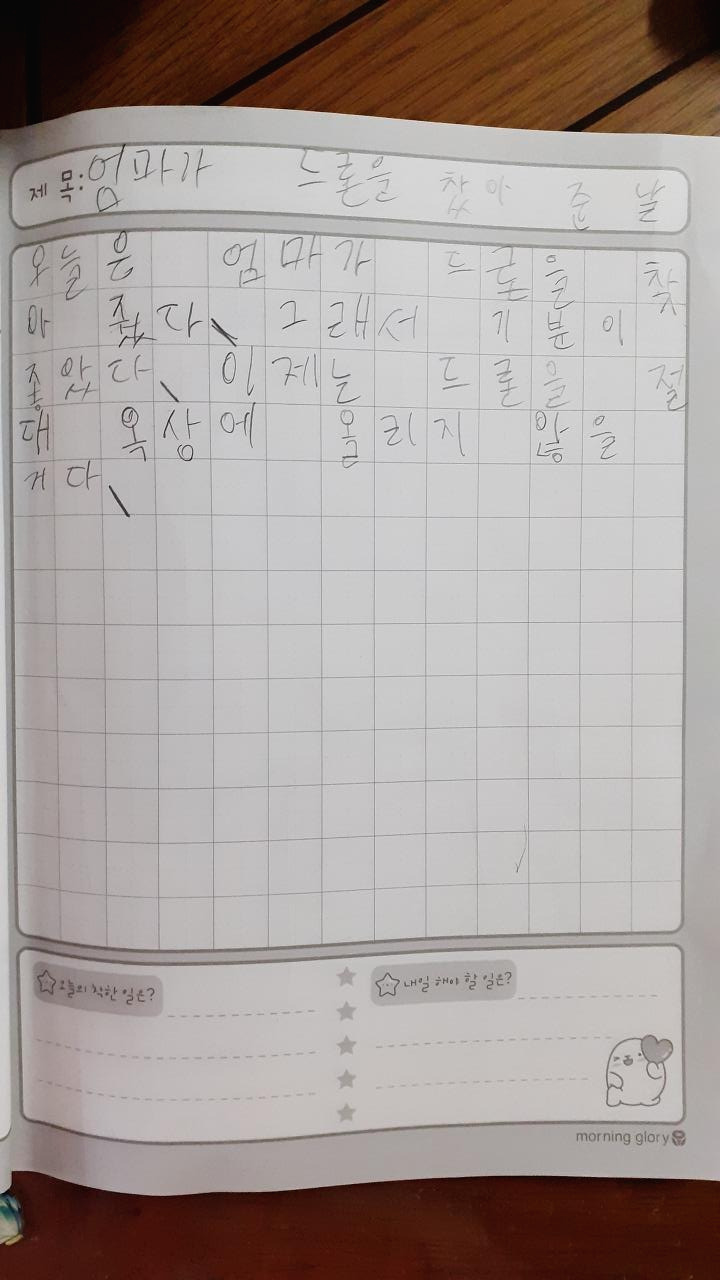 제 목: 엄마가 드론을 찾아 준 날
오늘은 엄마가 드론을 찾
아 줬다. 그래서 기분이
좋았다. 이제는 드론을 절
대 옥상에 올리지 않을
거다.
오늘의 착한 일은?
내일 해야 할 일은?
morning glory